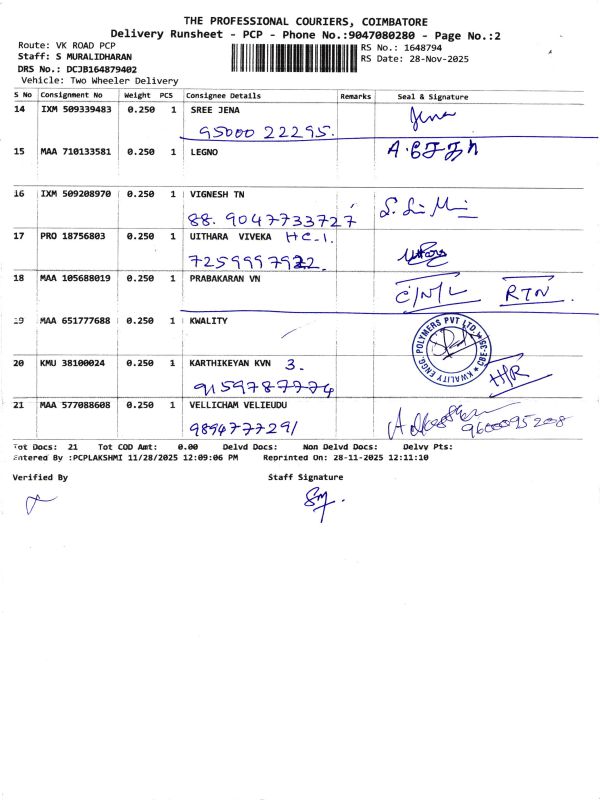 THE PROFESSIONAL COURIERS, COIMBATORE
Delivery Runsheet - PCP - Phone No.:9047080280 - Page No.:2
Route: VK ROAD PCP
RS No.: 1648794
Staff: S MURALIDHARAN
RS Date: 28-Nov-2025
DRS No.: DCJB164879402
Vehicle: Two Wheeler Delivery
S No Consignment No Weight PCS Consignee Details Remarks Seal & Signature
14 IXM 509339483 0.250 1 SREE JENA Jena
95000 22295.
15 MAA 710133581 0.250 1 LEGNO
16 IXM 509208970 0.250 1 VIGNESH TN
88. 9047733727
17 PRO 18756803 0.250 1 UITHARA VIVEKA HC-1.
7259997922.
18 MAA 105688019 0.250 1 PRABAKARAN VN C/N/L RTN.
19 MAA 651777688 0.250 1 KWALITY
KWALITY ENGG. POLYMERS PVT LTD. SC-CBE-
20 KMU 38100024 0.250 1 KARTHIKEYAN KVN 3. H/R
9159787774
21 MAA 577088608 0.250 1 VELLICHAM VELIEUDU
9894777291 9600095208
Tot Docs: 21 Tot COD Amt: 0.00 Delvd Docs: Non Delvd Docs: Delvy Pts:
Entered By :PCPLAKSHMI 11/28/2025 12:09:06 PM Reprinted On: 28-11-2025 12:11:10
Verified By Staff Signature